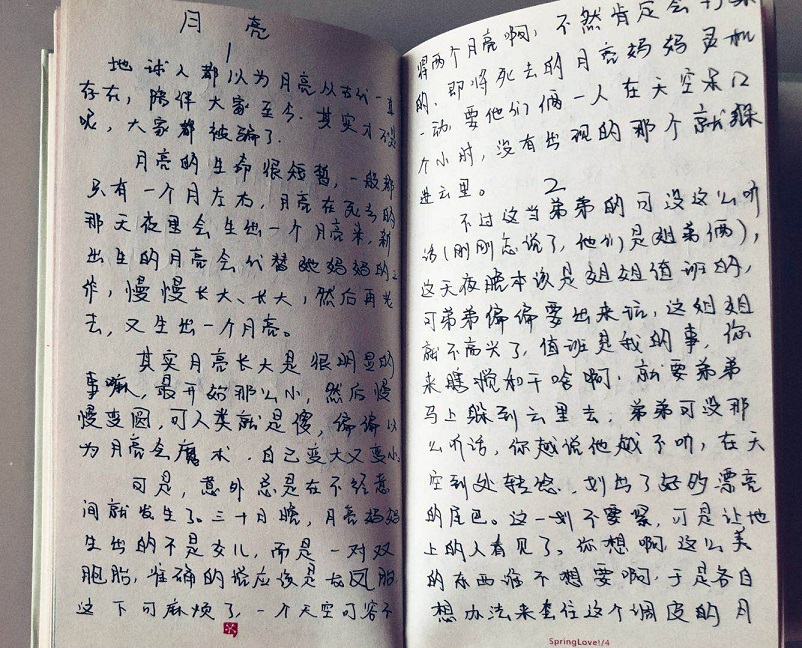 月 亮
1
地球人都以为月亮从古代一直
存在，陪伴大家至今。其实才不是
呢，大家都被骗了。
月亮的生命很短暂，一般都
只有一个月左右，月亮在死去的
那天夜里会生出一个月亮来，新
出生的月亮会代替她妈妈的工
作，慢慢长大、长大，然后再死
去，又生出一个月亮。
其实月亮长大是很明显的
事嘛，最开始那么小，然后慢
慢变圆，可人类就是傻，偏偏以
为月亮会魔术，自己变大又变小。
可是，意外总是在不经意
间就发生了。三十月晚，月亮妈妈
生出的不是女儿，而是一对双
胞胎，准确的说应该是龙凤胎
这下可麻烦了，一个天空可容不
得两个月亮啊，不然肯定会
的，即将死去的月亮妈妈灵机
一动，要他们俩一人在天空呆12
个小时，没有出现的那个就躲
进云里。
2
不过这当弟弟的可没这么听
话(刚刚忘说了，他们是姐弟俩)，
这天夜晚本该是姐姐值班的，
可弟弟偏偏要出来玩，这姐姐
就不高兴了，值班是我的事，你
来瞎搅和干啥啊，就要弟弟
马上躲到云里去，弟弟可没那
么听话，你越说他越不听，在天
空到处转悠，划出了好多漂亮
的尾巴。这一划不要紧，可是让地
上的人看见了。你想啊，这么美
的东西谁不想要啊，于是各自
想办法来套住这个调皮的月
SpringLove!/4